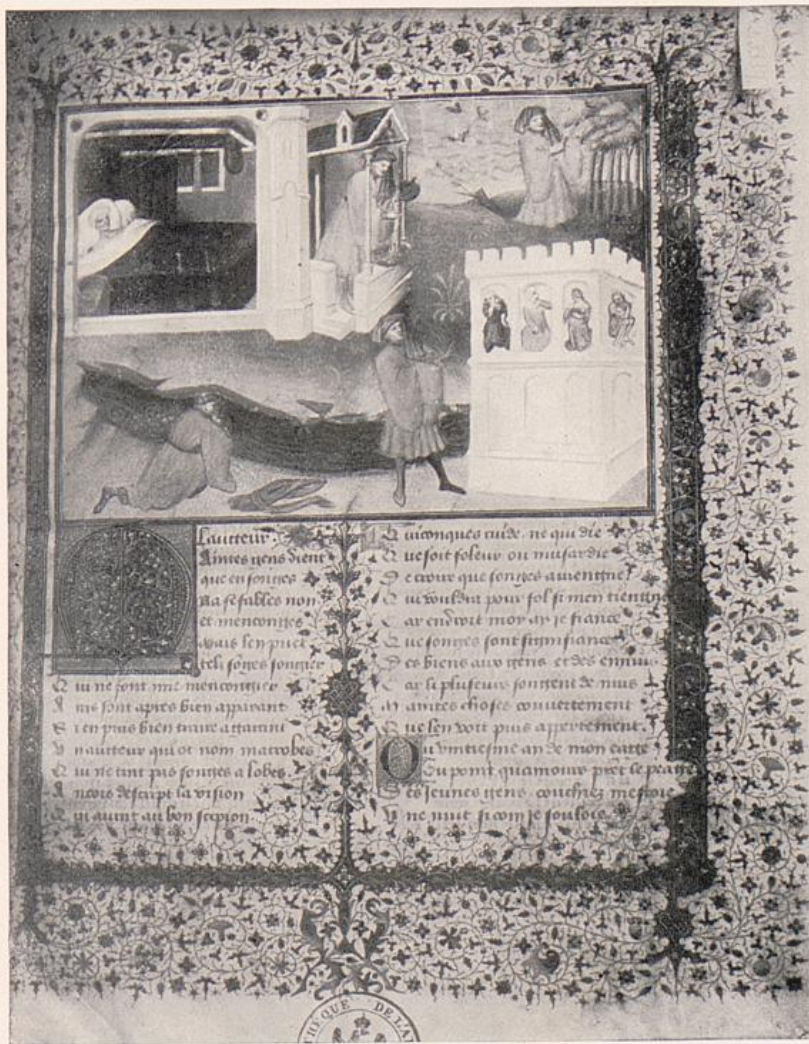 Lauteur.
Maintes gens dient
que en songes
Na se fables non
et menconges
Mais len puet
telz songes songier
Qui ne sont mie mencongier
Ains sont apres bien apparant
Si en puis bien traire a garant
Un aucteur qui ot nom macrobes
Qui ne tint pas songes a lobes
Ancois descript la vision
Qui avint au bon scipion
Quiconques cuide ne qui die
Que soit foleur ou musardie
De croire que songes aviengne
Qui vouldra pour fol si men tiengne
Car endroit moy ay je fiance
Que songes sont signifiance
Des biens aux gens et des ennuis
Car li pluseurs songent de nuis
Maintes choses couvertement
Que len voit puis appertement.
Ou vintiesme an de mon eage
Ou point quamours prent le peage
Des jeunes gens couchiez mestoie
Une nuit si com je souloie
THÈQUE DE LA